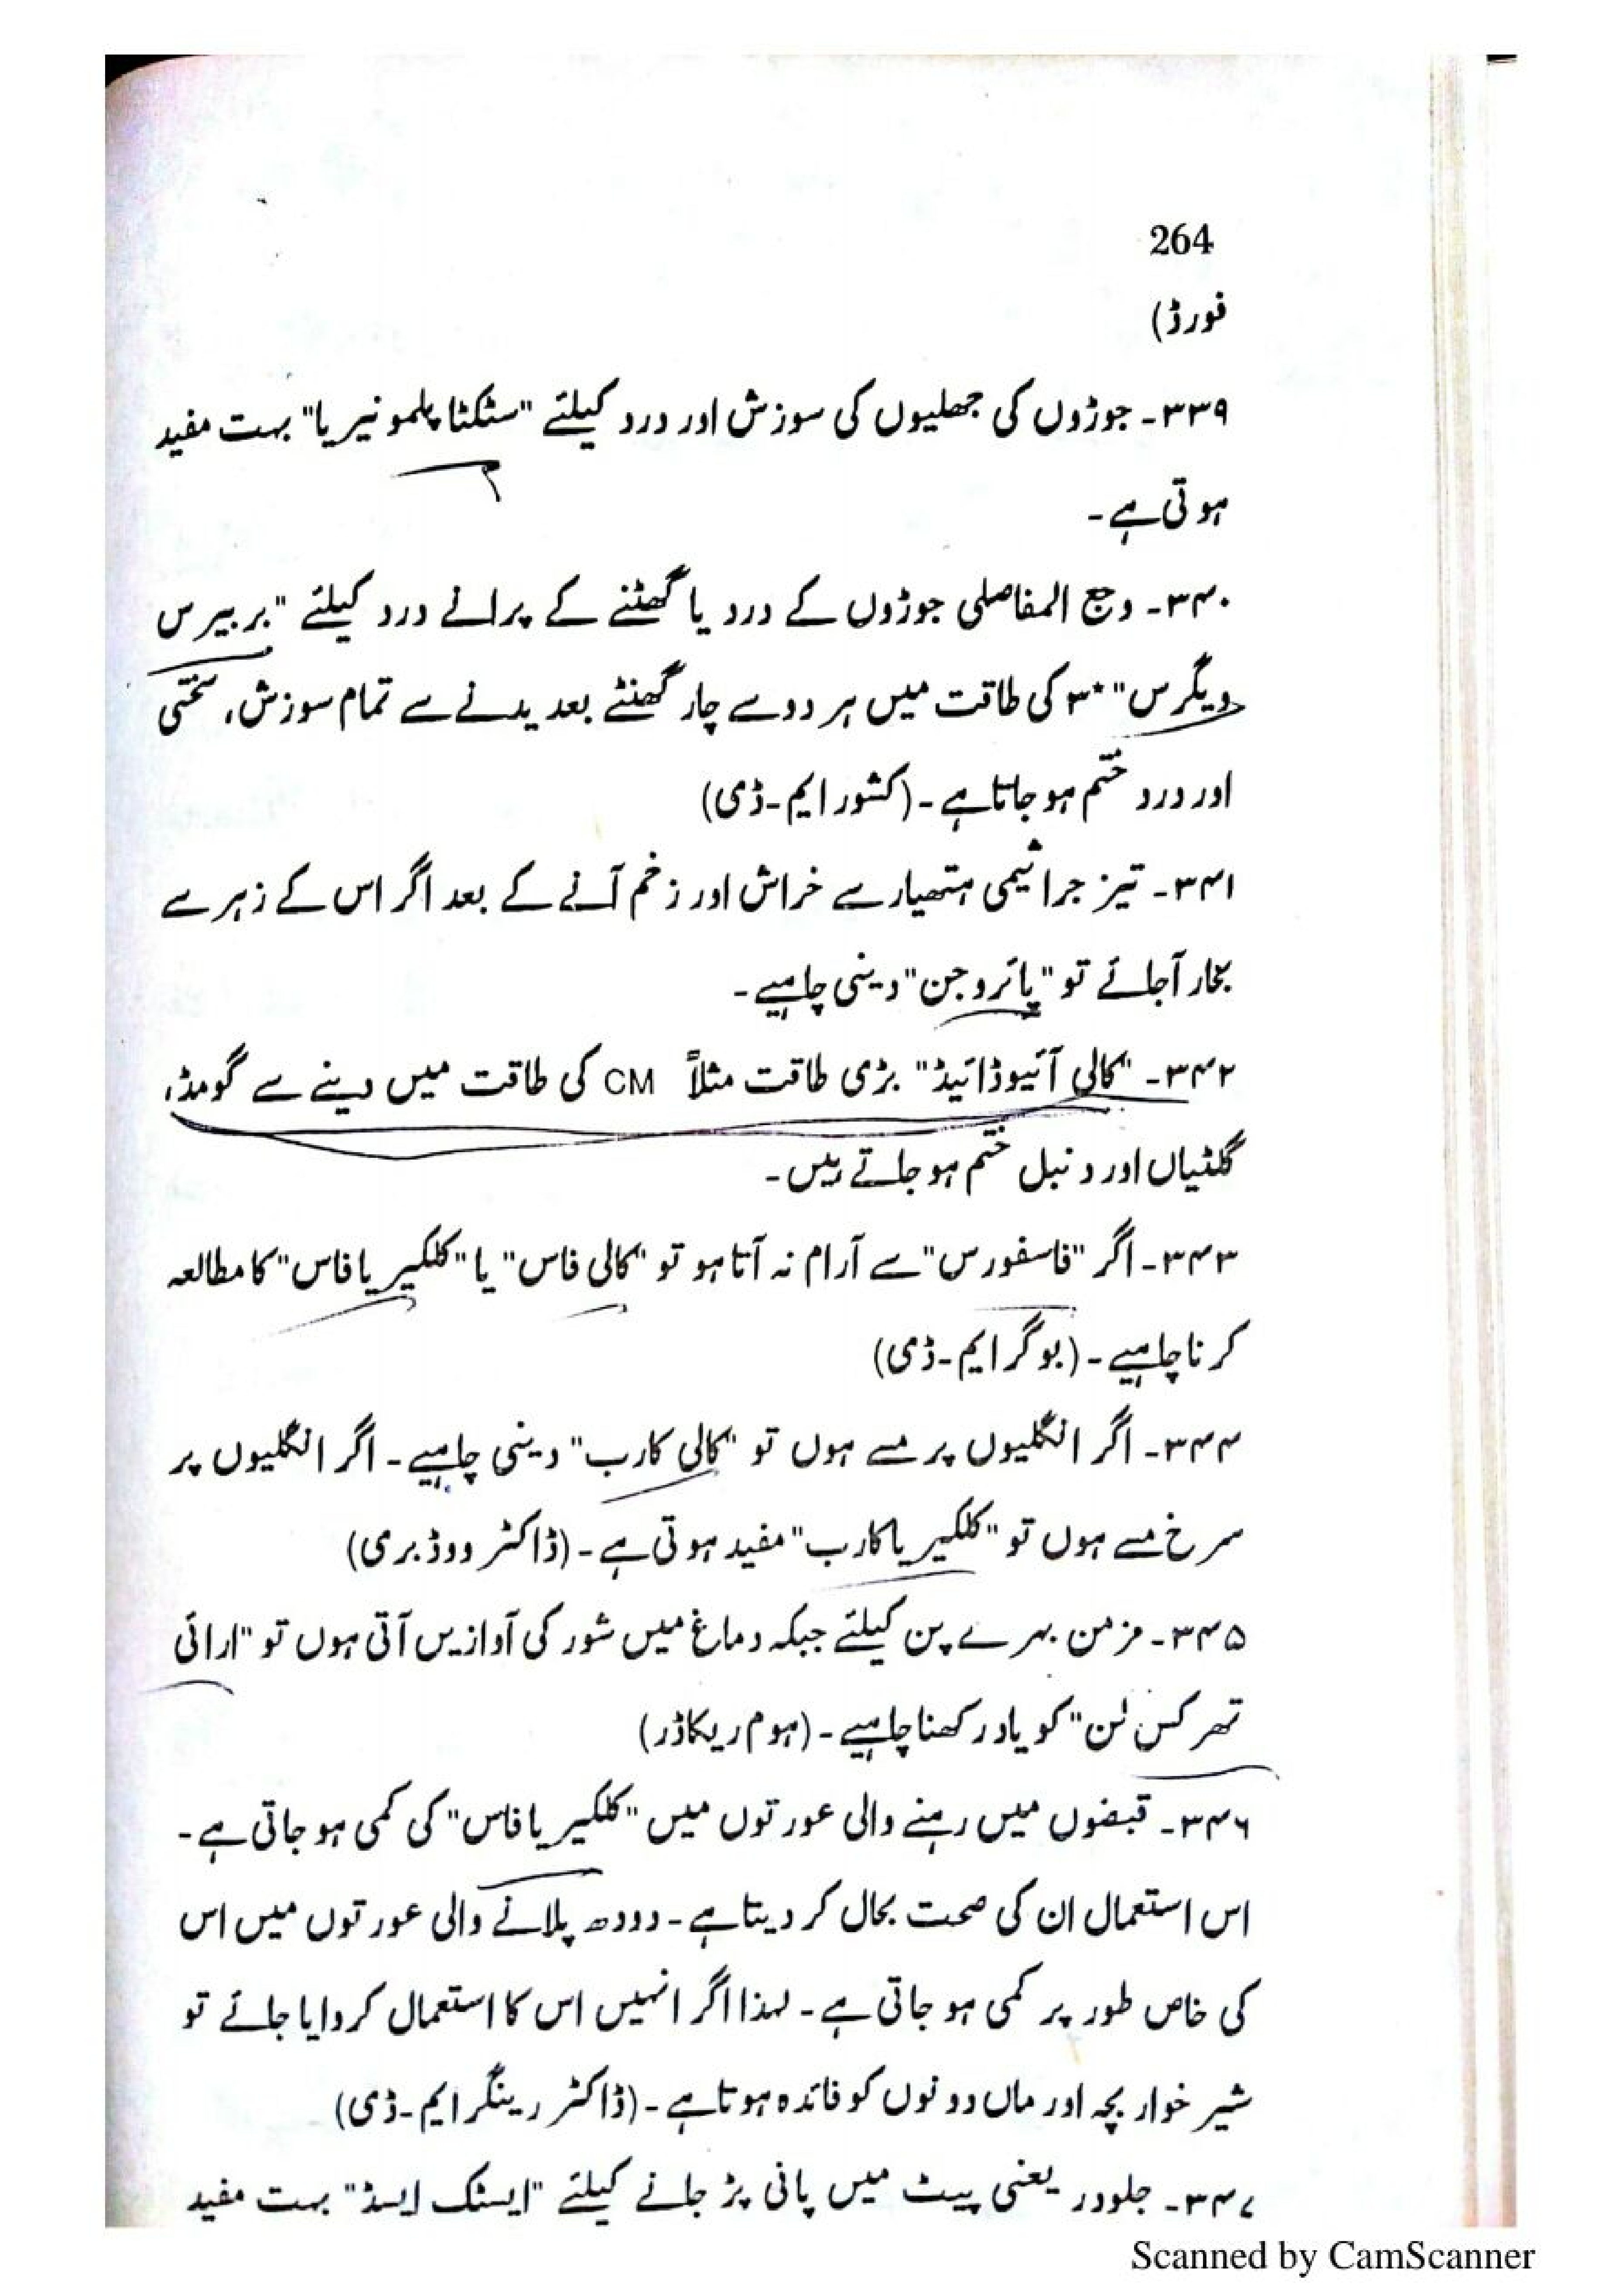 264
فورڈ)
۳۳۹۔ جوڑوں کی جھلیوں کی سوزش اور درد کیلئے "سٹکٹا پلمو نیریا" بہت مفید
ہوتی ہے۔
۳۴۰۔ وجع المفاصلی جوڑوں کے درد یا گھٹنے کے پرانے درد کیلئے "بربیرس
ویگرس" ۳* کی طاقت میں ہر دو سے چار گھنٹے بعد یدنے سے تمام سوزش، سختی
اور درد ختم ہو جاتا ہے۔ (کشور ایم۔ڈی)
۳۴۱۔ تیز جراثیمی ہتھیار سے خراش اور زخم آنے کے بعد اگر اس کے زہر سے
بخار آجائے تو "پائروجن" دینی چاہیے۔
۳۴۲۔ "کالی آئیوڈائیڈ" بڑی طاقت مثلاً CM کی طاقت میں دینے سے گومڑ،
گلٹیاں اور دنبل ختم ہو جاتے ہیں۔
۳۴۳۔ اگر "فاسفورس" سے آرام نہ آتا ہو تو "کالی فاس" یا "کلکیریا فاس" کا مطالعہ
کرنا چاہیے۔ (بوگر ایم۔ڈی)
۳۴۴۔ اگر انگلیوں پر مسے ہوں تو "کالی کارب" دینی چاہیے۔ اگر انگلیوں پر
سرخ مسے ہوں تو "کلکیریا کارب" مفید ہوتی ہے۔ (ڈاکٹر ووڈ بری)
۳۴۵۔ مزمن بہرے پن کیلئے جبکہ دماغ میں شور کی آوازیں آتی ہوں تو "ارائی
تھرکس لن" کو یاد رکھنا چاہیے۔ (ہوم ریکاڈر)
۳۴۶۔ قبضوں میں رہنے والی عورتوں میں "کلکیریا فاس" کی کمی ہو جاتی ہے۔
اس استعمال ان کی صحت بحال کر دیتا ہے۔ دودھ پلانے والی عورتوں میں اس
کی خاص طور پر کمی ہو جاتی ہے۔ لہذا اگر انہیں اس کا استعمال کروایا جائے تو
شیر خوار بچہ اور ماں دونوں کو فائدہ ہوتا ہے۔ (ڈاکٹر رینگر ایم۔ڈی)
۳۴۷۔ جلودر یعنی پیٹ میں پانی پڑ جانے کیلئے "ایسٹک ایسڈ" بہت مفید
Scanned by CamScanner